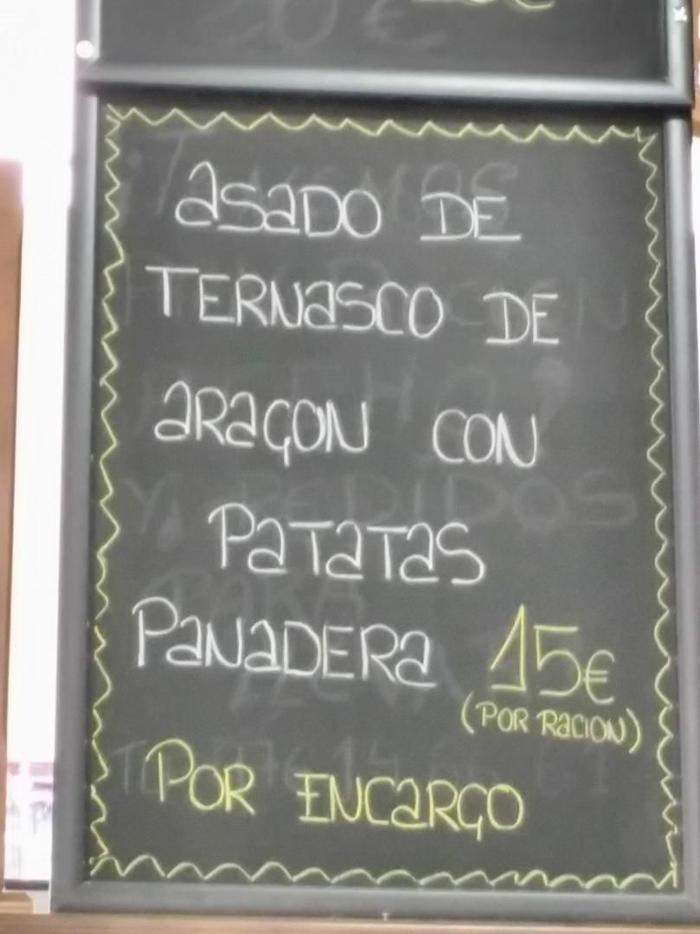 ASADO DE
TERNASCO DE
ARAGON CON
PATATAS
PANADERA 15€
(POR RACION)
POR ENCARGO